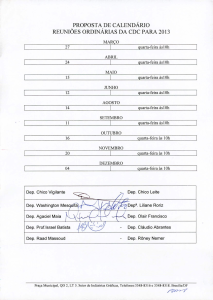 PROPOSTA DE CALENDÁRIO
REUNIÕES ORDINÁRIAS DA CDC PARA 2013
MARÇO
27 quarta-feira às 9h
ABRIL
24 quarta-feira às 9h
MAIO
15 quarta-feira às 9h
JUNHO
12 quarta-feira às 9h
AGOSTO
14 quarta-feira às 9h
SETEMBRO
11 quarta-feira às 10h
OUTUBRO
16 quarta-feira às 10h
NOVEMBRO
20 quarta-feira às 10h
DEZEMBRO
04 quarta-feira às 10h
Dep. Chico Vigilante Dep. Chico Leite
Dep. Washington Mesquita Depª. Liliane Roriz
Dep. Agaciel Maia Dep. Olair Francisco
Dep. Prof Israel Batista Dep. Cláudio Abrantes
Dep. Raad Massouh Dep. Rôney Nemer
Praça Municipal, QD 2, LT 5 Setor de Indústrias Gráficas, Telefones: